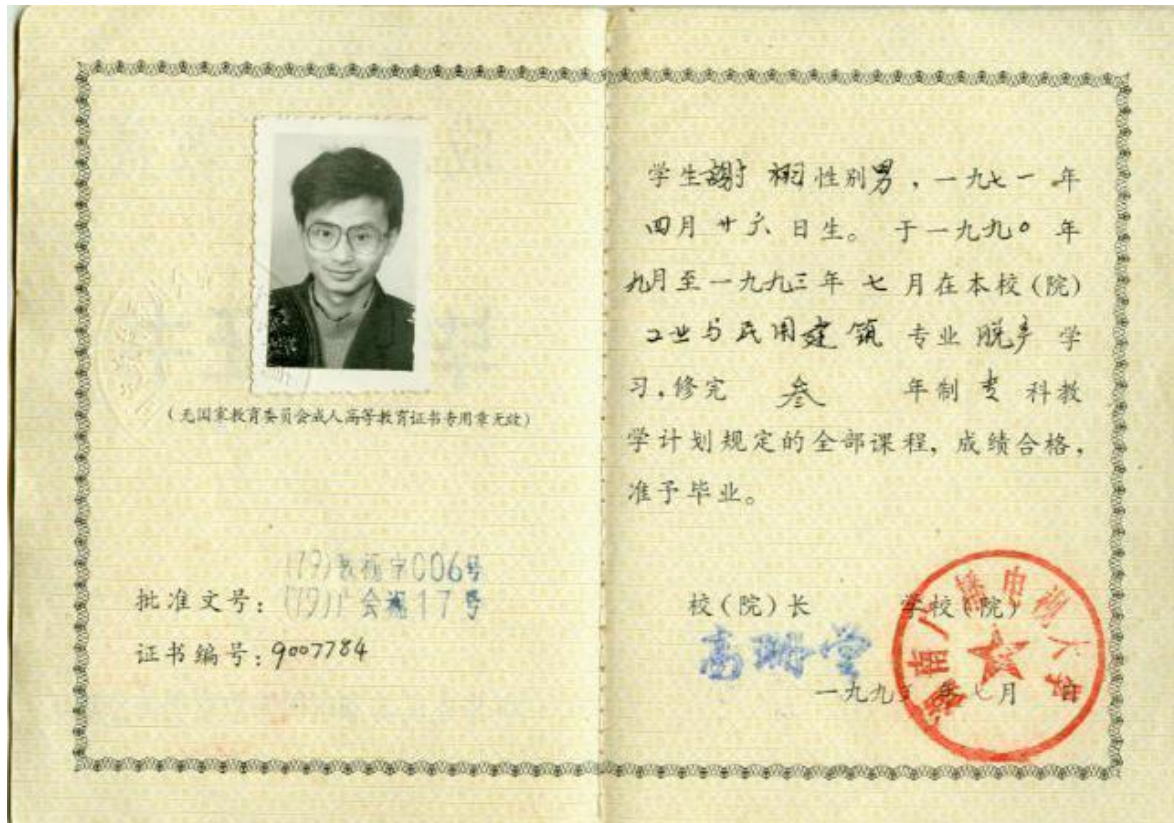 (无国家教育委员会成人高等教育证书专用章无效)
批准文号:
(79)教视字006号
(79)广会湘17号
证书编号:9007784
学生謝栩性别男,一九七一年
四月廿六日生。于一九九〇年
九月至一九九三年七月在本校(院)
工业与民用建筑专业脱产学
习,修完叁年制专科教
学计划规定的全部课程,成绩合格,
准予毕业。
校(院)长 学校(院)
高
一九九三年七月 日
湖南广播电视大学